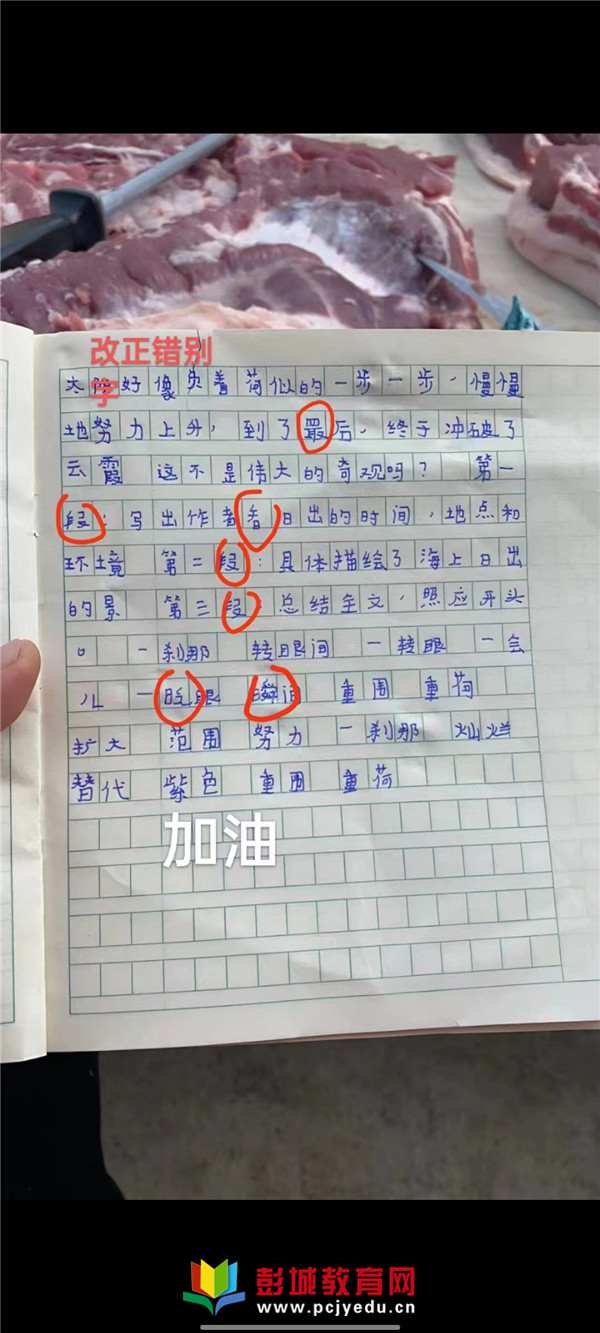 改正错别
字
太阳好像负着荷似的一步一步,慢慢
地努力上升,到了最后,终于冲破了
云霞 这不是伟大的奇观吗? 第一
段:写出作者看日出的时间,地点和
环境 第二段:具体描绘了海上日出
的景 第三段:总结全文,照应开头
。 一刹那 转眼间 一转眼 一会
儿 一眨眼 瞬间 重围 重荷
扩大 范围 努力 一刹那 灿烂
替代 紫色 重围 重荷
加油
彭城教育网
www.pcjyedu.cn